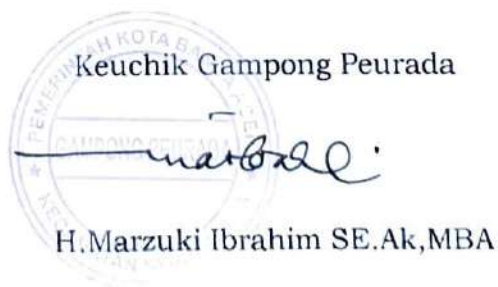 Keuchik Gampong Peurada
PEMERINTAH KOTA BANDA ACEH
GAMPONG PEURADA
H.Marzuki Ibrahim SE.Ak,MBA